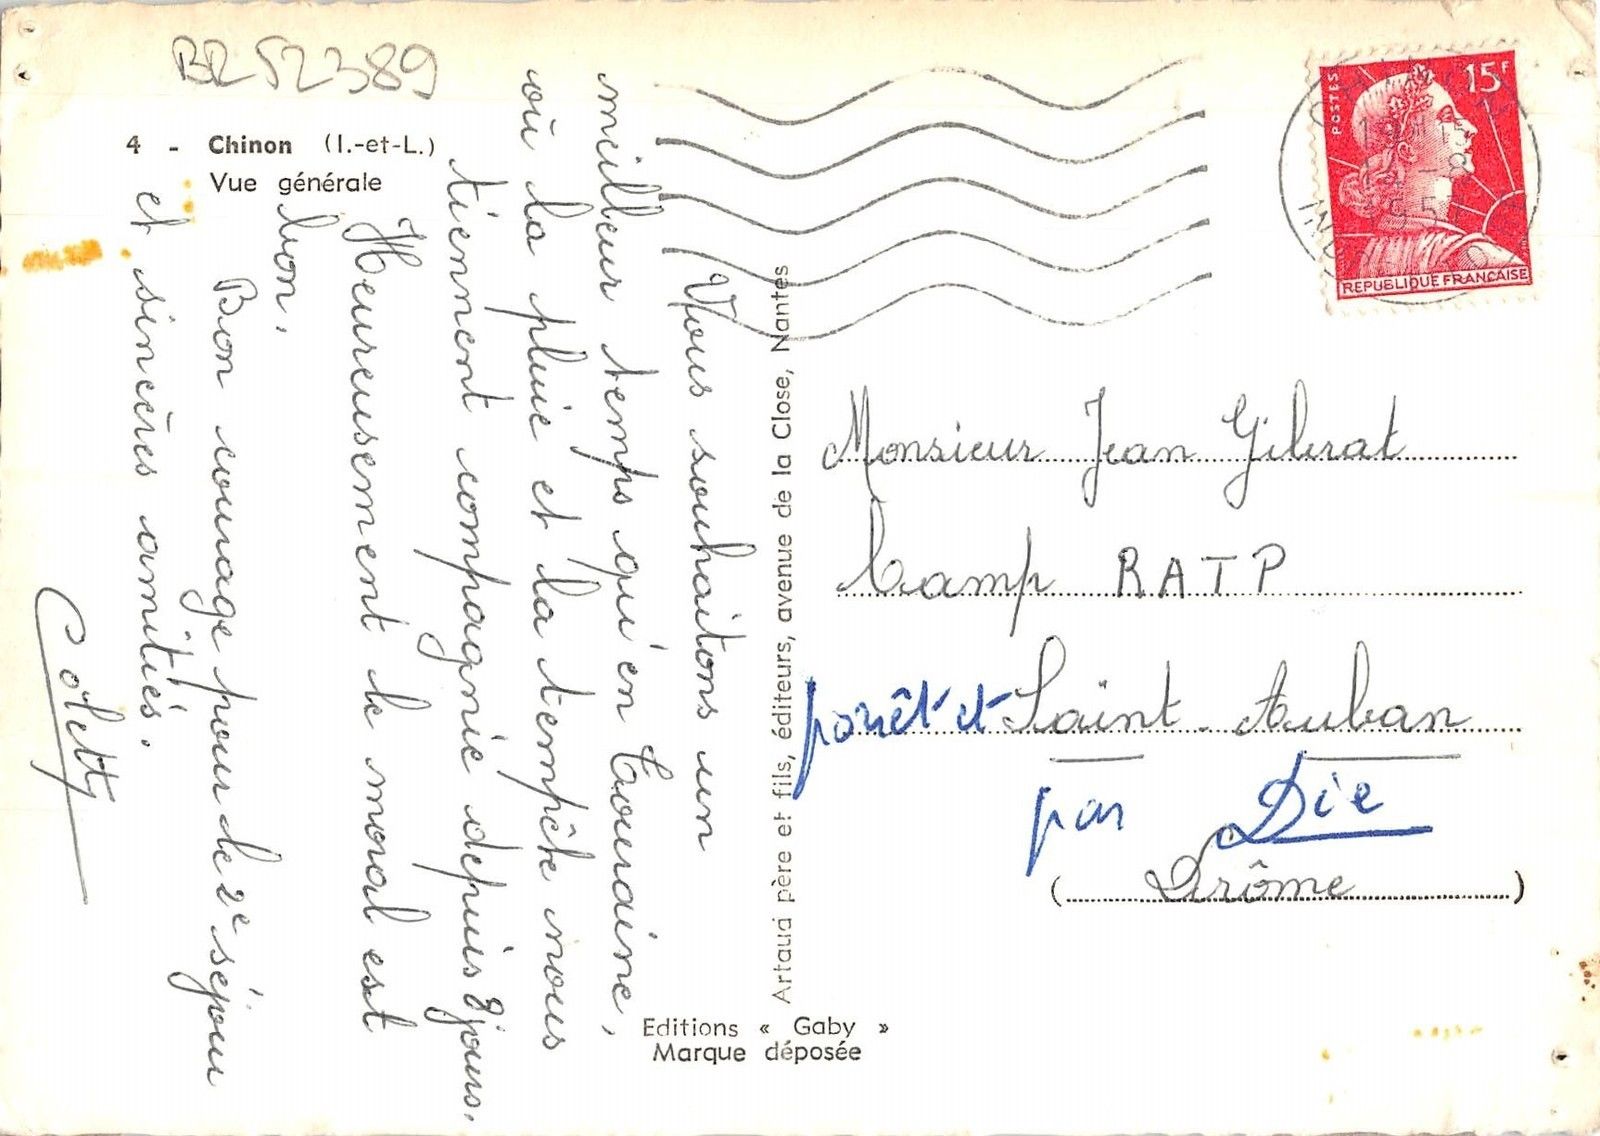 BR 52389
4 - Chinon (I.-et-L.)
Vue générale
Vous souhaitons un
meilleur temps qu'en Touraine,
où la pluie et la tempête nous
tiennent compagnie depuis 8 jours.
Heureusement le moral est
bon.
Bon courage pour le 2e séjour
et sincères amitiés.
Coletty
Artaud père et fils, éditeurs, avenue de la Close, Nantes
Editions « Gaby »
Marque déposée
POSTES
15F
REPUBLIQUE FRANÇAISE
Monsieur Jean Gibrat
Camp RATP
forêt et Saint-Auban
par Die
(Drôme)